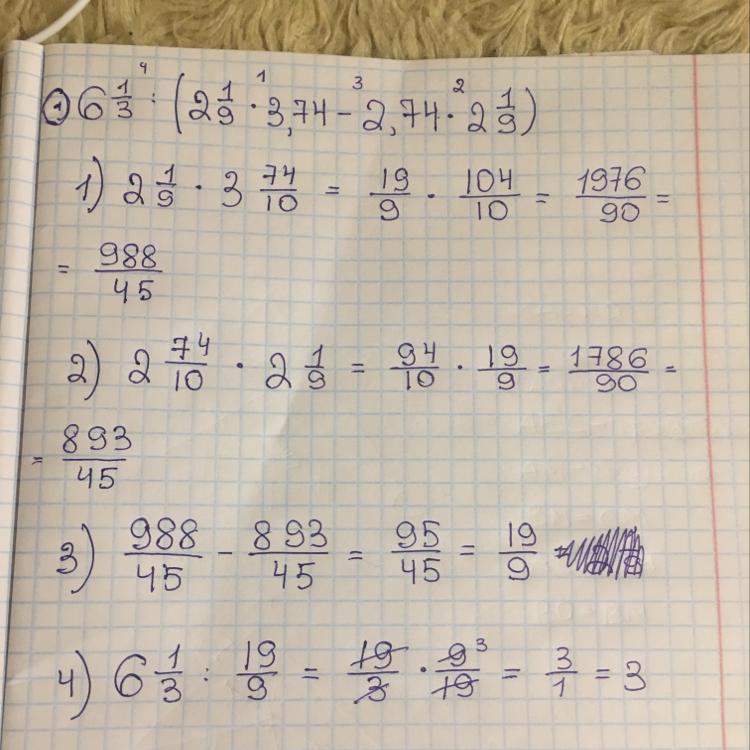 ① 6 1/3 : (2 1/9 · 3,74 − 2,74 · 2 1/9)
1) 2 1/9 · 3 74/10 = 19/9 · 104/10 = 1976/90 =
= 988/45
2) 2 74/10 · 2 1/9 = 94/10 · 19/9 = 1786/90 =
= 893/45
3) 988/45 − 893/45 = 95/45 = 19/9
4) 6 1/3 : 19/9 = 19/3 · 9 3/19 = 3/1 = 3